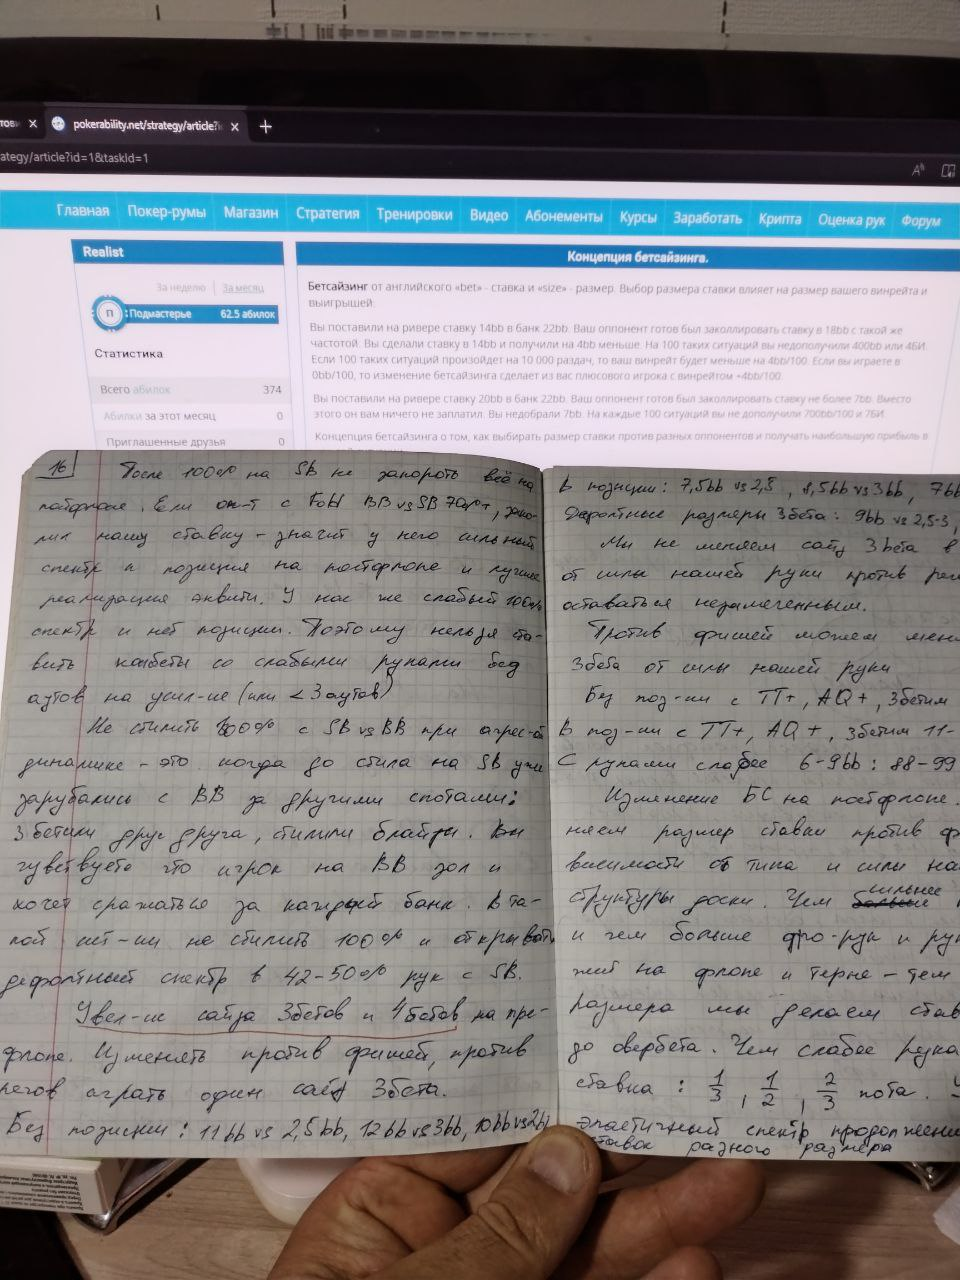 pokerability.net/strategy/article?i
ategy/article?id=1&taskId=1
Главная Покер-румы Магазин Стратегия Тренировки Видео Абонементы Курсы Заработать Крипта Оценка рук Форум
Realist
За неделю За месяц
П Подмастерье 62.5 абилок
Статистика
Всего абилок 374
Абилки за этот месяц 0
Приглашенные друзья 0
Концепция бетсайзинга.
Бетсайзинг от английского «bet» - ставка и «size» - размер. Выбор размера ставки влияет на размер вашего винрейта и
выигрышей:
Вы поставили на ривере ставку 14bb в банк 22bb. Ваш оппонент готов был заколлировать ставку в 18bb с такой же
частотой. Вы сделали ставку в 14bb и получили на 4bb меньше. На 100 таких ситуаций вы недополучили 400bb или 4БИ.
Если 100 таких ситуаций произойдет на 10 000 раздач, то ваш винрейт будет меньше на 4bb/100. Если вы играете в
0bb/100, то изменение бетсайзинга сделает из вас плюсового игрока с винрейтом +4bb/100.
Вы поставили на ривере ставку 20bb в банк 22bb. Ваш оппонент готов был заколлировать ставку не более 7bb. Вместо
этого он вам ничего не заплатил. Вы недобрали 7bb. На каждые 100 ситуаций вы не дополучили 700bb/100 и 7БИ.
Концепция бетсайзинга о том, как выбирать размер ставки против разных оппонентов и получать наибольшую прибыль в
16 После 100% на SB не запороть всё на
постфлопе. Если оп-т с FoH BB vs SB 70%+, зако-
лил нашу ставку - значит у него сильный
спектр и позиция на постфлопе и лучшее
реализация эквити. У нас же слабый 100%
спектр и нет позиции. Поэтому нельзя ста-
вить конбеты со слабыми руками без
аутов на усил-ие (или < 3 аутов)
Не стилить 100% с SB vs BB при агрес-ой
динамике - это когда до стила на SB уже
зарубались с BB за другими спотами:
3бетили друг друга, стилили блайнды. Вы
чувствуете что игрок на BB зол и
хочет сражаться за каждый банк. В та-
кой сит-ии не стилить 100% и открывать
дефолтный спектр в 42-50% рук с SB.
Увел-ие сайза 3бетов и 4бетов на пре-
флопе. Изменять против фишей, против
регов играть один сайз 3бета.
Без позиции: 11bb vs 2,5bb, 12bb vs 3bb, 10bb vs 2bb
В позиции: 7,5bb vs 2,5, 8,5bb vs 3bb, 7bb
Дефолтные размеры 3бета: 9bb vs 2,5-3,
Мы не меняем сайз 3beta в
от силы нашей руки против рег
оставаться незамеченным.
Против фишей можем мен
3бета от силы нашей руки
Без поз-ии с TT+, AQ+, 3бетим
В поз-ии с TT+, AQ+, 3бетим 11-
С руками слабее 6-9bb: 88-99
Изменение БС на постфлопе.
няем размер ставки против ф
висимости от типа и силы на
структуры доски. Чем сильнее
и чем больше дро-рук и рук
жий на флопе и терне - тем
размера мы делаем став
до овербета. Чем слабее рука
ставка: 1/3, 1/2, 2/3 пота.
эластичный спектр продолжени
ставок разного размера